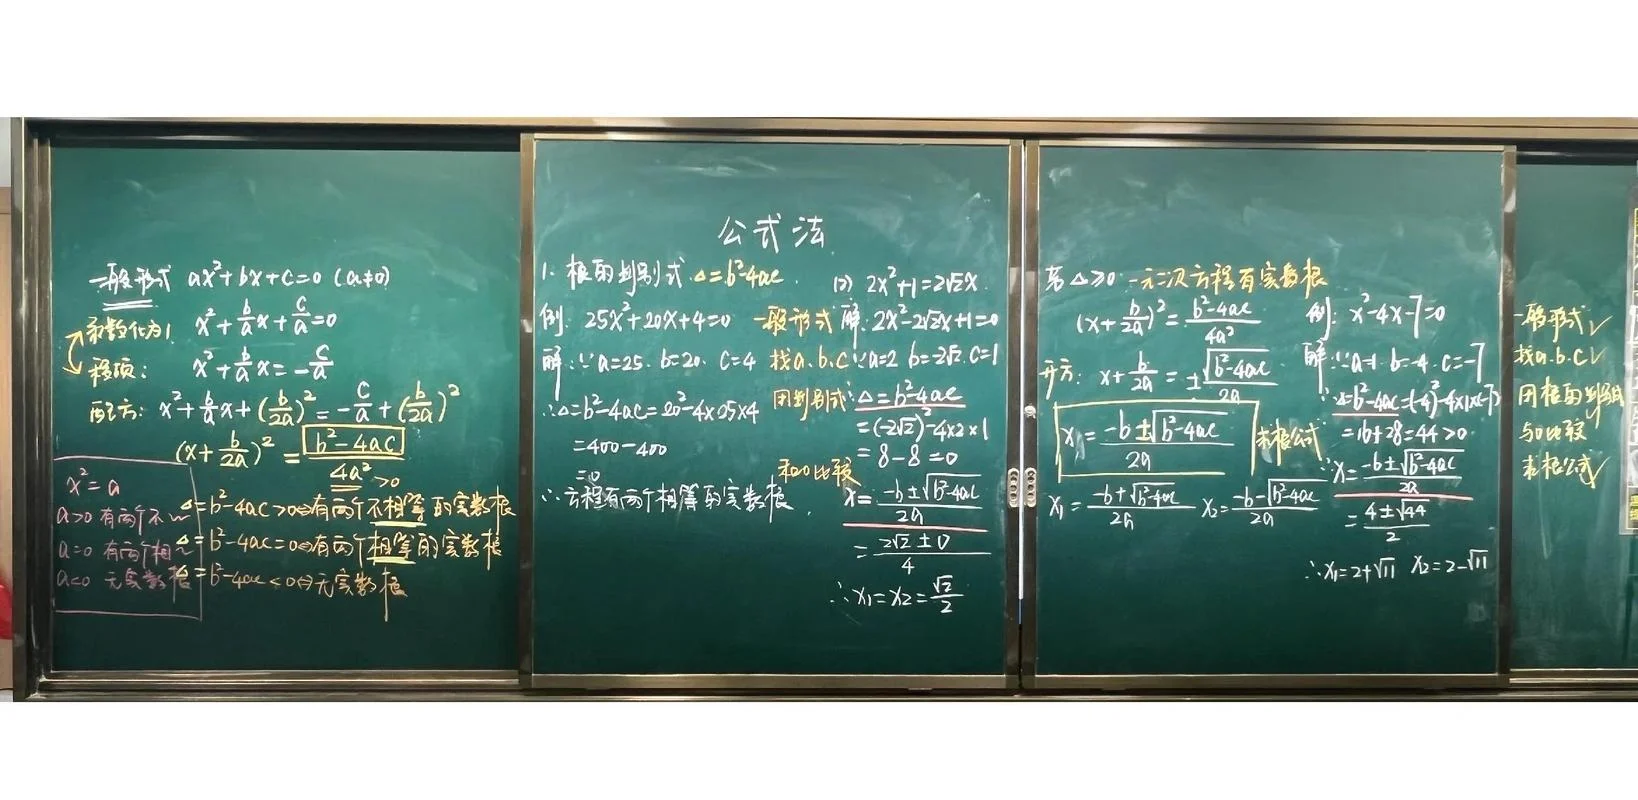 一般形式 ax²+bx+c=0 (a≠0)
系数化为1. x²+b/a x+c/a=0
移项: x²+b/a x=-c/a
配方: x²+b/a x+(b/2a)²=-c/a+(b/2a)²
(x+b/2a)²=b²-4ac/4a² >0
x²=a
a>0 有两个不~
a=0 有两个相~
a<0 无实数根
△=b²-4ac>0⇔有两个不相等的实数根
△=b²-4ac=0⇔有两个相等的实数根
△=b²-4ac<0⇔无实数根
公式法
1. 根的判别式 △=b²-4ac
例: 25x²+20x+4=0
解: ∵a=25. b=20. c=4
∴△=b²-4ac=20²-4×25×4
=400-400
=0
∴方程有两个相等的实数根.
一般形式
找a.b.c
用判别式
和0比较
(2) 2x²+1=2√2x
解: 2x²-2√2x+1=0
∵a=2 b=-2√2. c=1
∴△=b²-4ac
=(-2√2)²-4×2×1
=8-8=0
x=-b±√b²-4ac/2a
=2√2±0/4
∴x₁=x₂=√2/2
若△≥0 一元二次方程有实数根
(x+b/2a)²=b²-4ac/4a²
开方: x+b/2a=±√b²-4ac/2a
x=-b±√b²-4ac/2a 求根公式
x₁=-b+√b²-4ac/2a x₂=-b-√b²-4ac/2a
例: x²-4x-7=0
解: ∵a=1. b=-4. c=-7
∴△=b²-4ac=(-4)²-4×1×(-7)
=16+28=44>0
∴x=-b±√b²-4ac/2a
=4±√44/2
∴x₁=2+√11 x₂=2-√11
一般形式✓
找a.b.c✓
用根的判别式
与0比较
求根公式✓